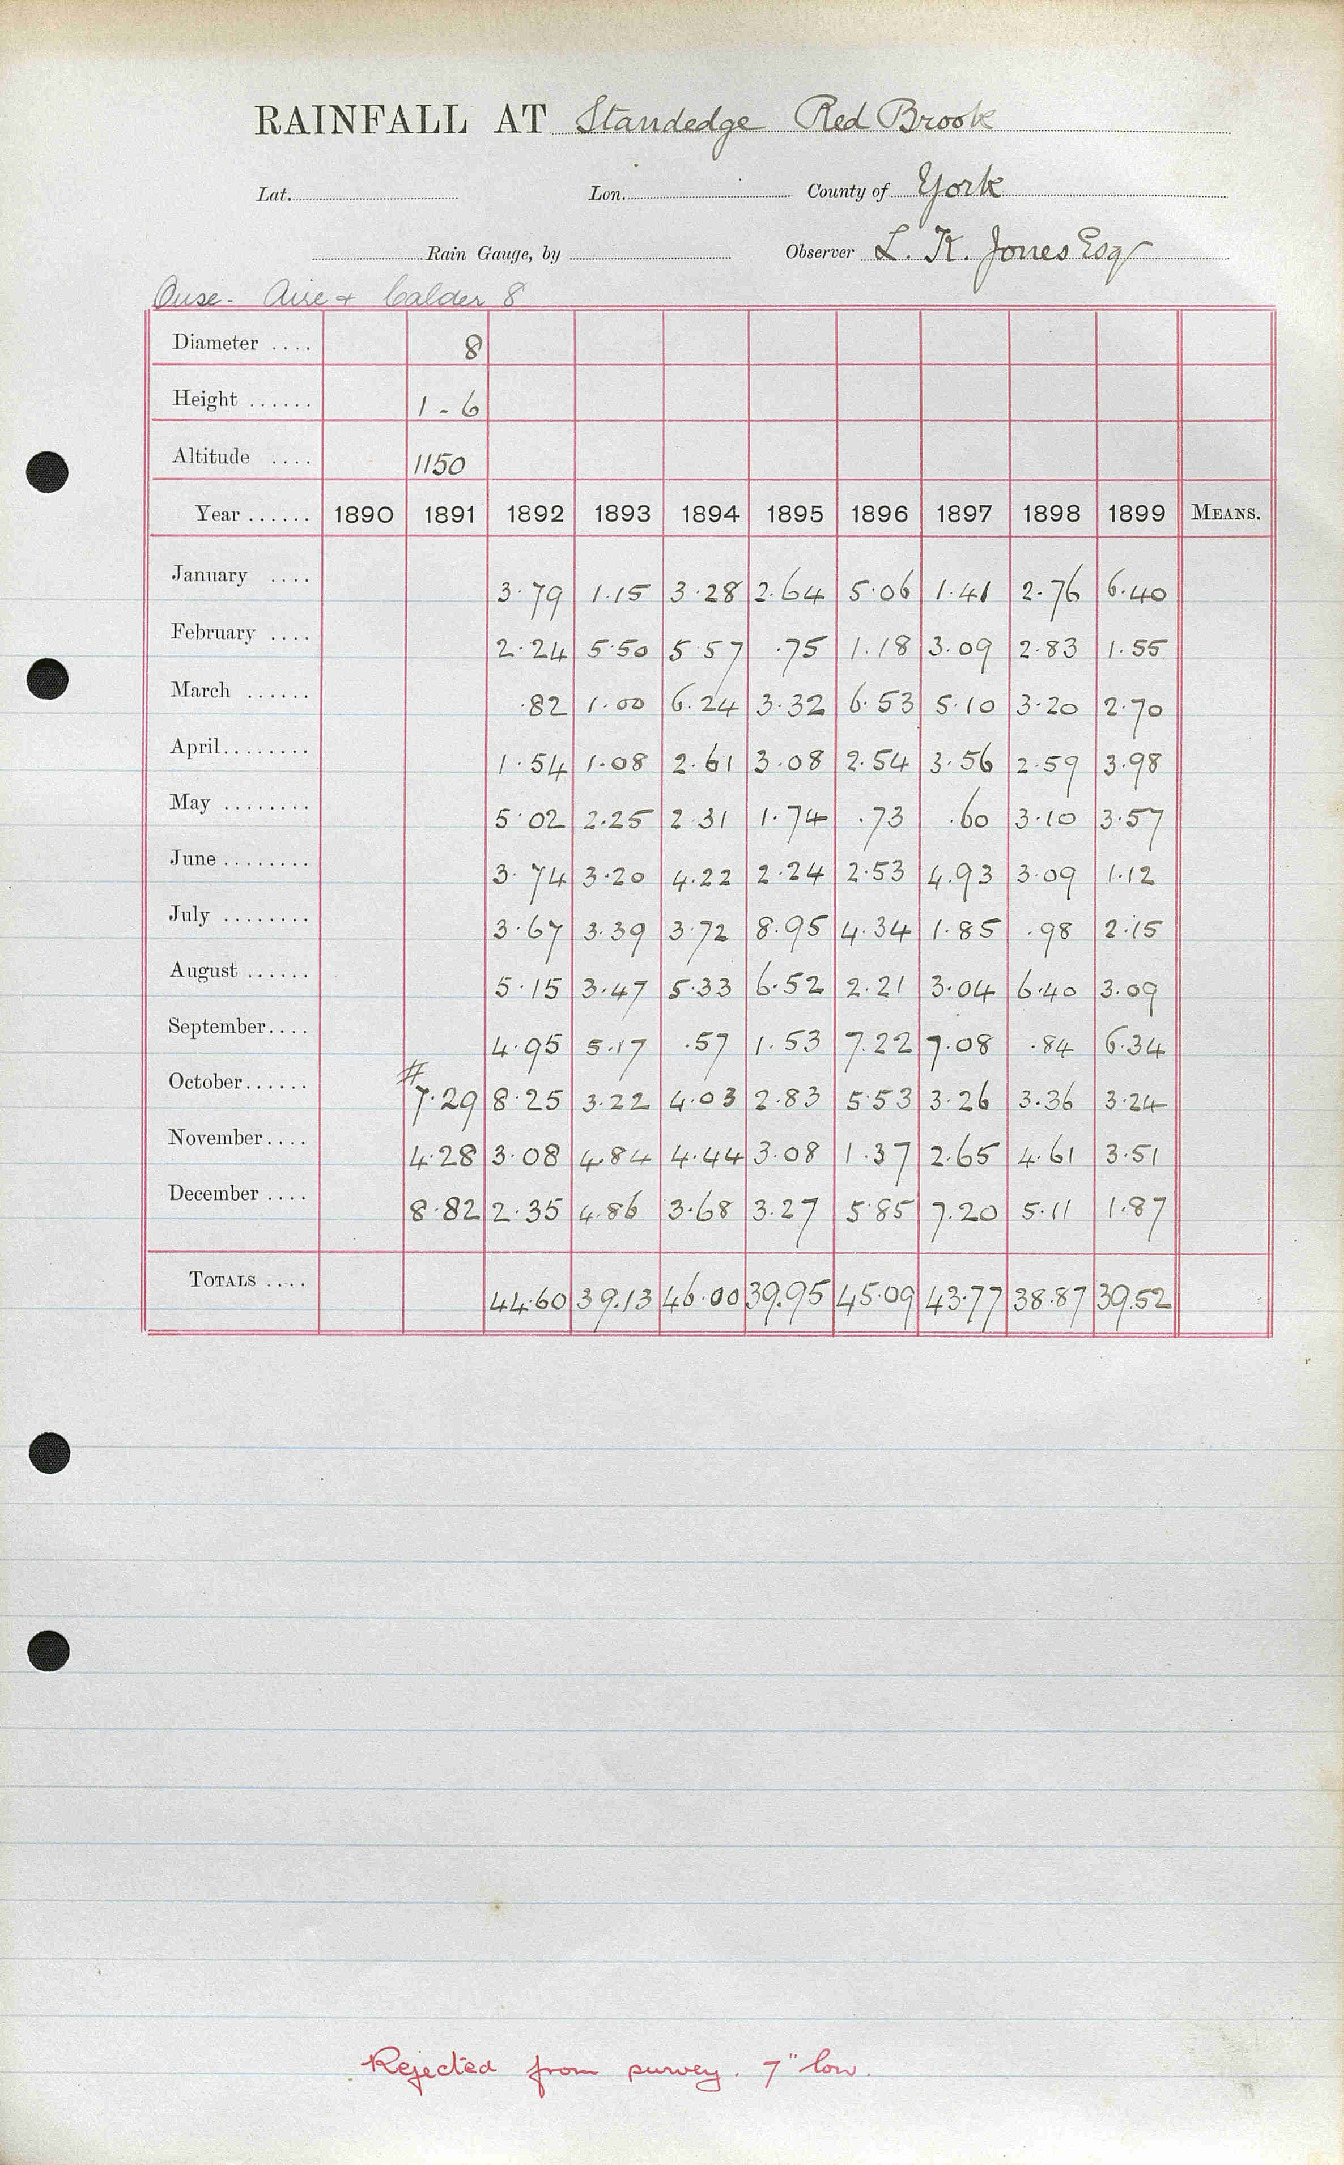 RAINFALL AT Standedge Red Brook
Lat. Lon. County of York
Rain Gauge, by Observer L. K. Jones Esq
Ouse - Aire + Calder 8
Diameter .... 8
Height ...... 1 - 6
Altitude .... 1150
Year ...... 1890 1891 1892 1893 1894 1895 1896 1897 1898 1899 MEANS.
January .... 3.79 1.15 3.28 2.64 5.06 1.41 2.76 6.40
February .... 2.24 5.50 5.57 .75 1.18 3.09 2.83 1.55
March ...... .82 1.00 6.24 3.32 6.53 5.10 3.20 2.70
April........ 1.54 1.08 2.61 3.08 2.54 3.56 2.59 3.98
May ........ 5.02 2.25 2.31 1.74 .73 .60 3.10 3.57
June ........ 3.74 3.20 4.22 2.24 2.53 4.93 3.09 1.12
July ........ 3.67 3.39 3.72 8.95 4.34 1.85 .98 2.15
August ...... 5.15 3.47 5.33 6.52 2.21 3.04 6.40 3.09
September.... 4.95 5.17 .57 1.53 7.22 7.08 .84 6.34
October...... # 7.29 8.25 3.22 4.03 2.83 5.53 3.26 3.36 3.24
November.... 4.28 3.08 4.84 4.44 3.08 1.37 2.65 4.61 3.51
December .... 8.82 2.35 4.86 3.68 3.27 5.85 7.20 5.11 1.87
TOTALS .... 44.60 39.13 46.00 39.95 45.09 43.77 38.87 39.52
Rejected from survey. 7" low.